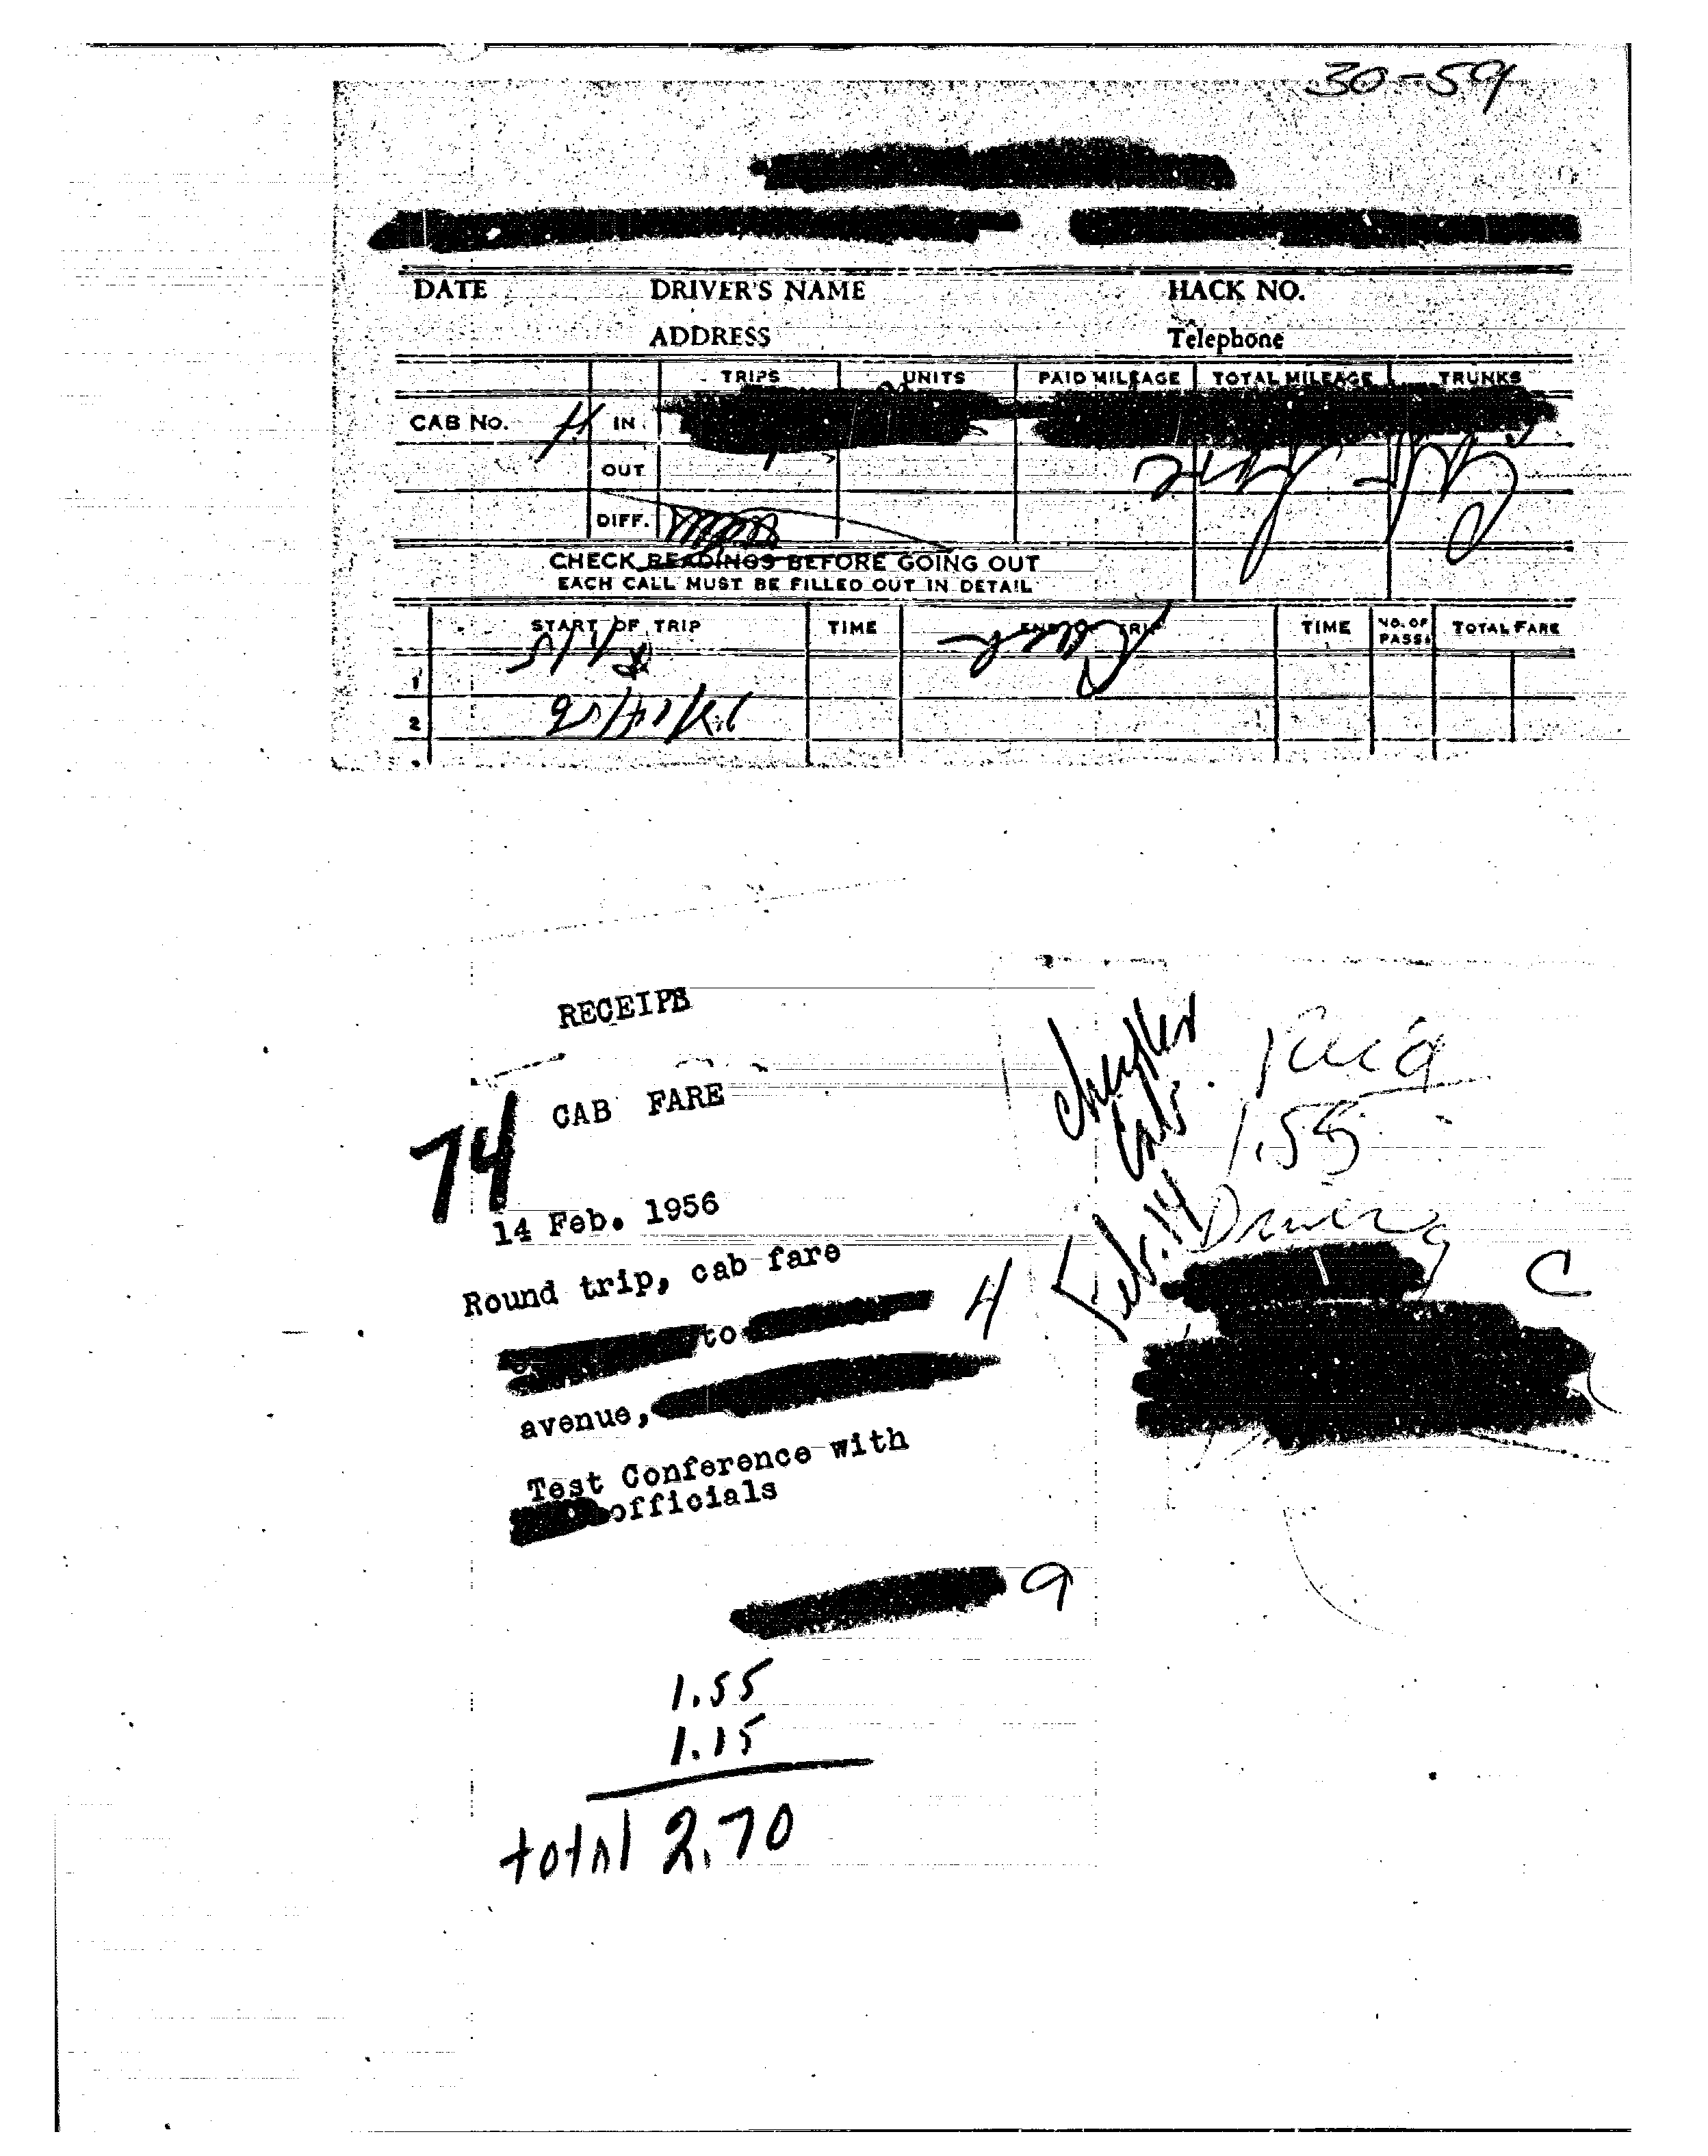 30-59
DATE DRIVER'S NAME HACK NO.
ADDRESS Telephone
TRIPS UNITS PAID MILEAGE TOTAL MILEAGE TRUNKS
CAB No. IN
OUT
DIFF.
CHECK READINGS BEFORE GOING OUT
EACH CALL MUST BE FILLED OUT IN DETAIL
START OF TRIP TIME END OF TRIP TIME NO. OF PASS. TOTAL FARE
1
2
RECEIPS
CAB FARE
74
14 Feb. 1956
Round trip, cab fare
to
avenue,
Test Conference with
officials
1.55
1.15
total 2.70
Cab.
Feb. 14
Paid
1.55
C